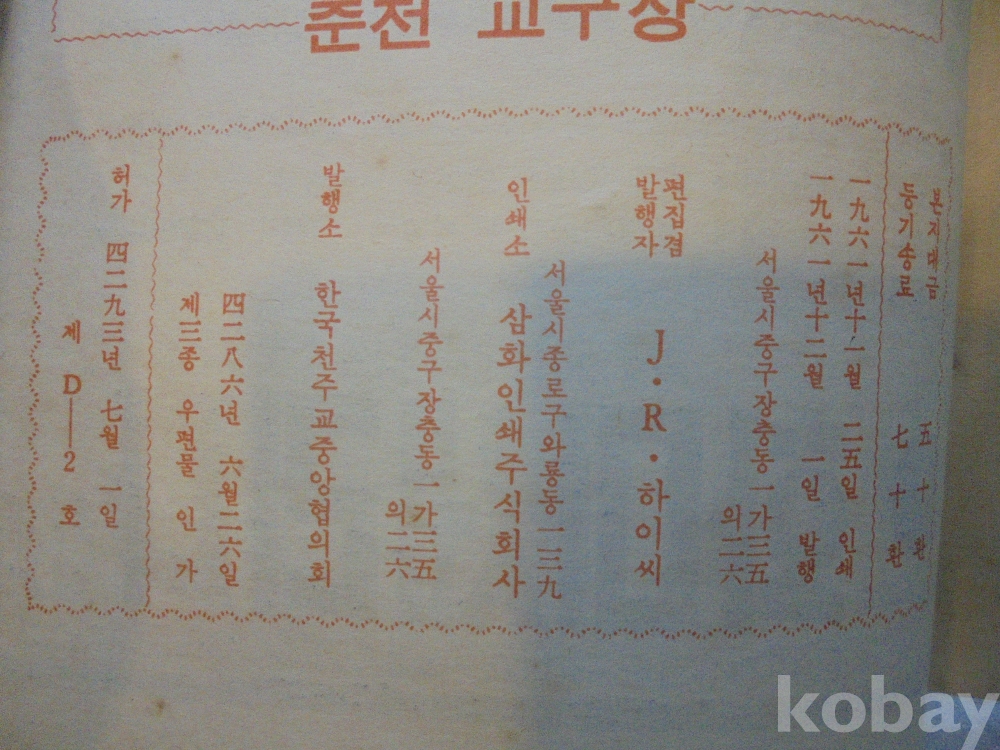 춘천 교구장
본지대금 五十환
등기송료 七十환
一九六一년十一월 二五일 인쇄
一九六一년十二월 一일 발행
서울시중구장충동一가三五
의二六
편집겸
발행자
J·R·하이씨
서울시종로구와룡동一三九
인쇄소 삼화인쇄주식회사
서울시중구장충동一가三五
의二六
발행소 한국천주교중앙협의회
四二八六년 六월二六일
제三종 우편물 인가
허가 四二九三년 七월 一일
제 D—2 호
kobay